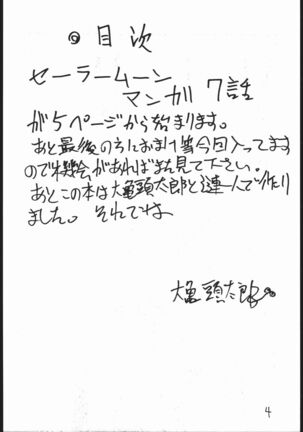 ◎目次
セーラームーン
マンガ 7話
が5ページから始まります。
あと最後の方におまけ等今回入ってます
ので機会があればまた見て下さい。
あとこの本は大亀頭太郎と達一人で作り
ました。それでは
大亀頭太郎
4